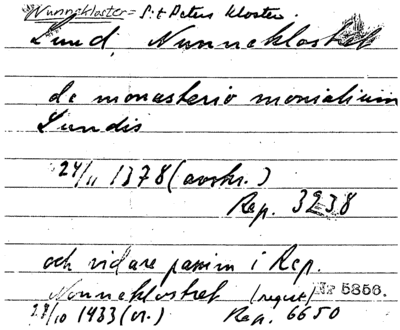 Nunnekloster = S:t Peters kloster.
Lund, Nunneklostret
de monasterio monialium
Lundis
24/11 1378 (avskr.)
Rep. 3238
och vidare passim i Rep.
Nonneklostret (regest) Nr 5856.
27/10 1433 (or.) Rep. 6650